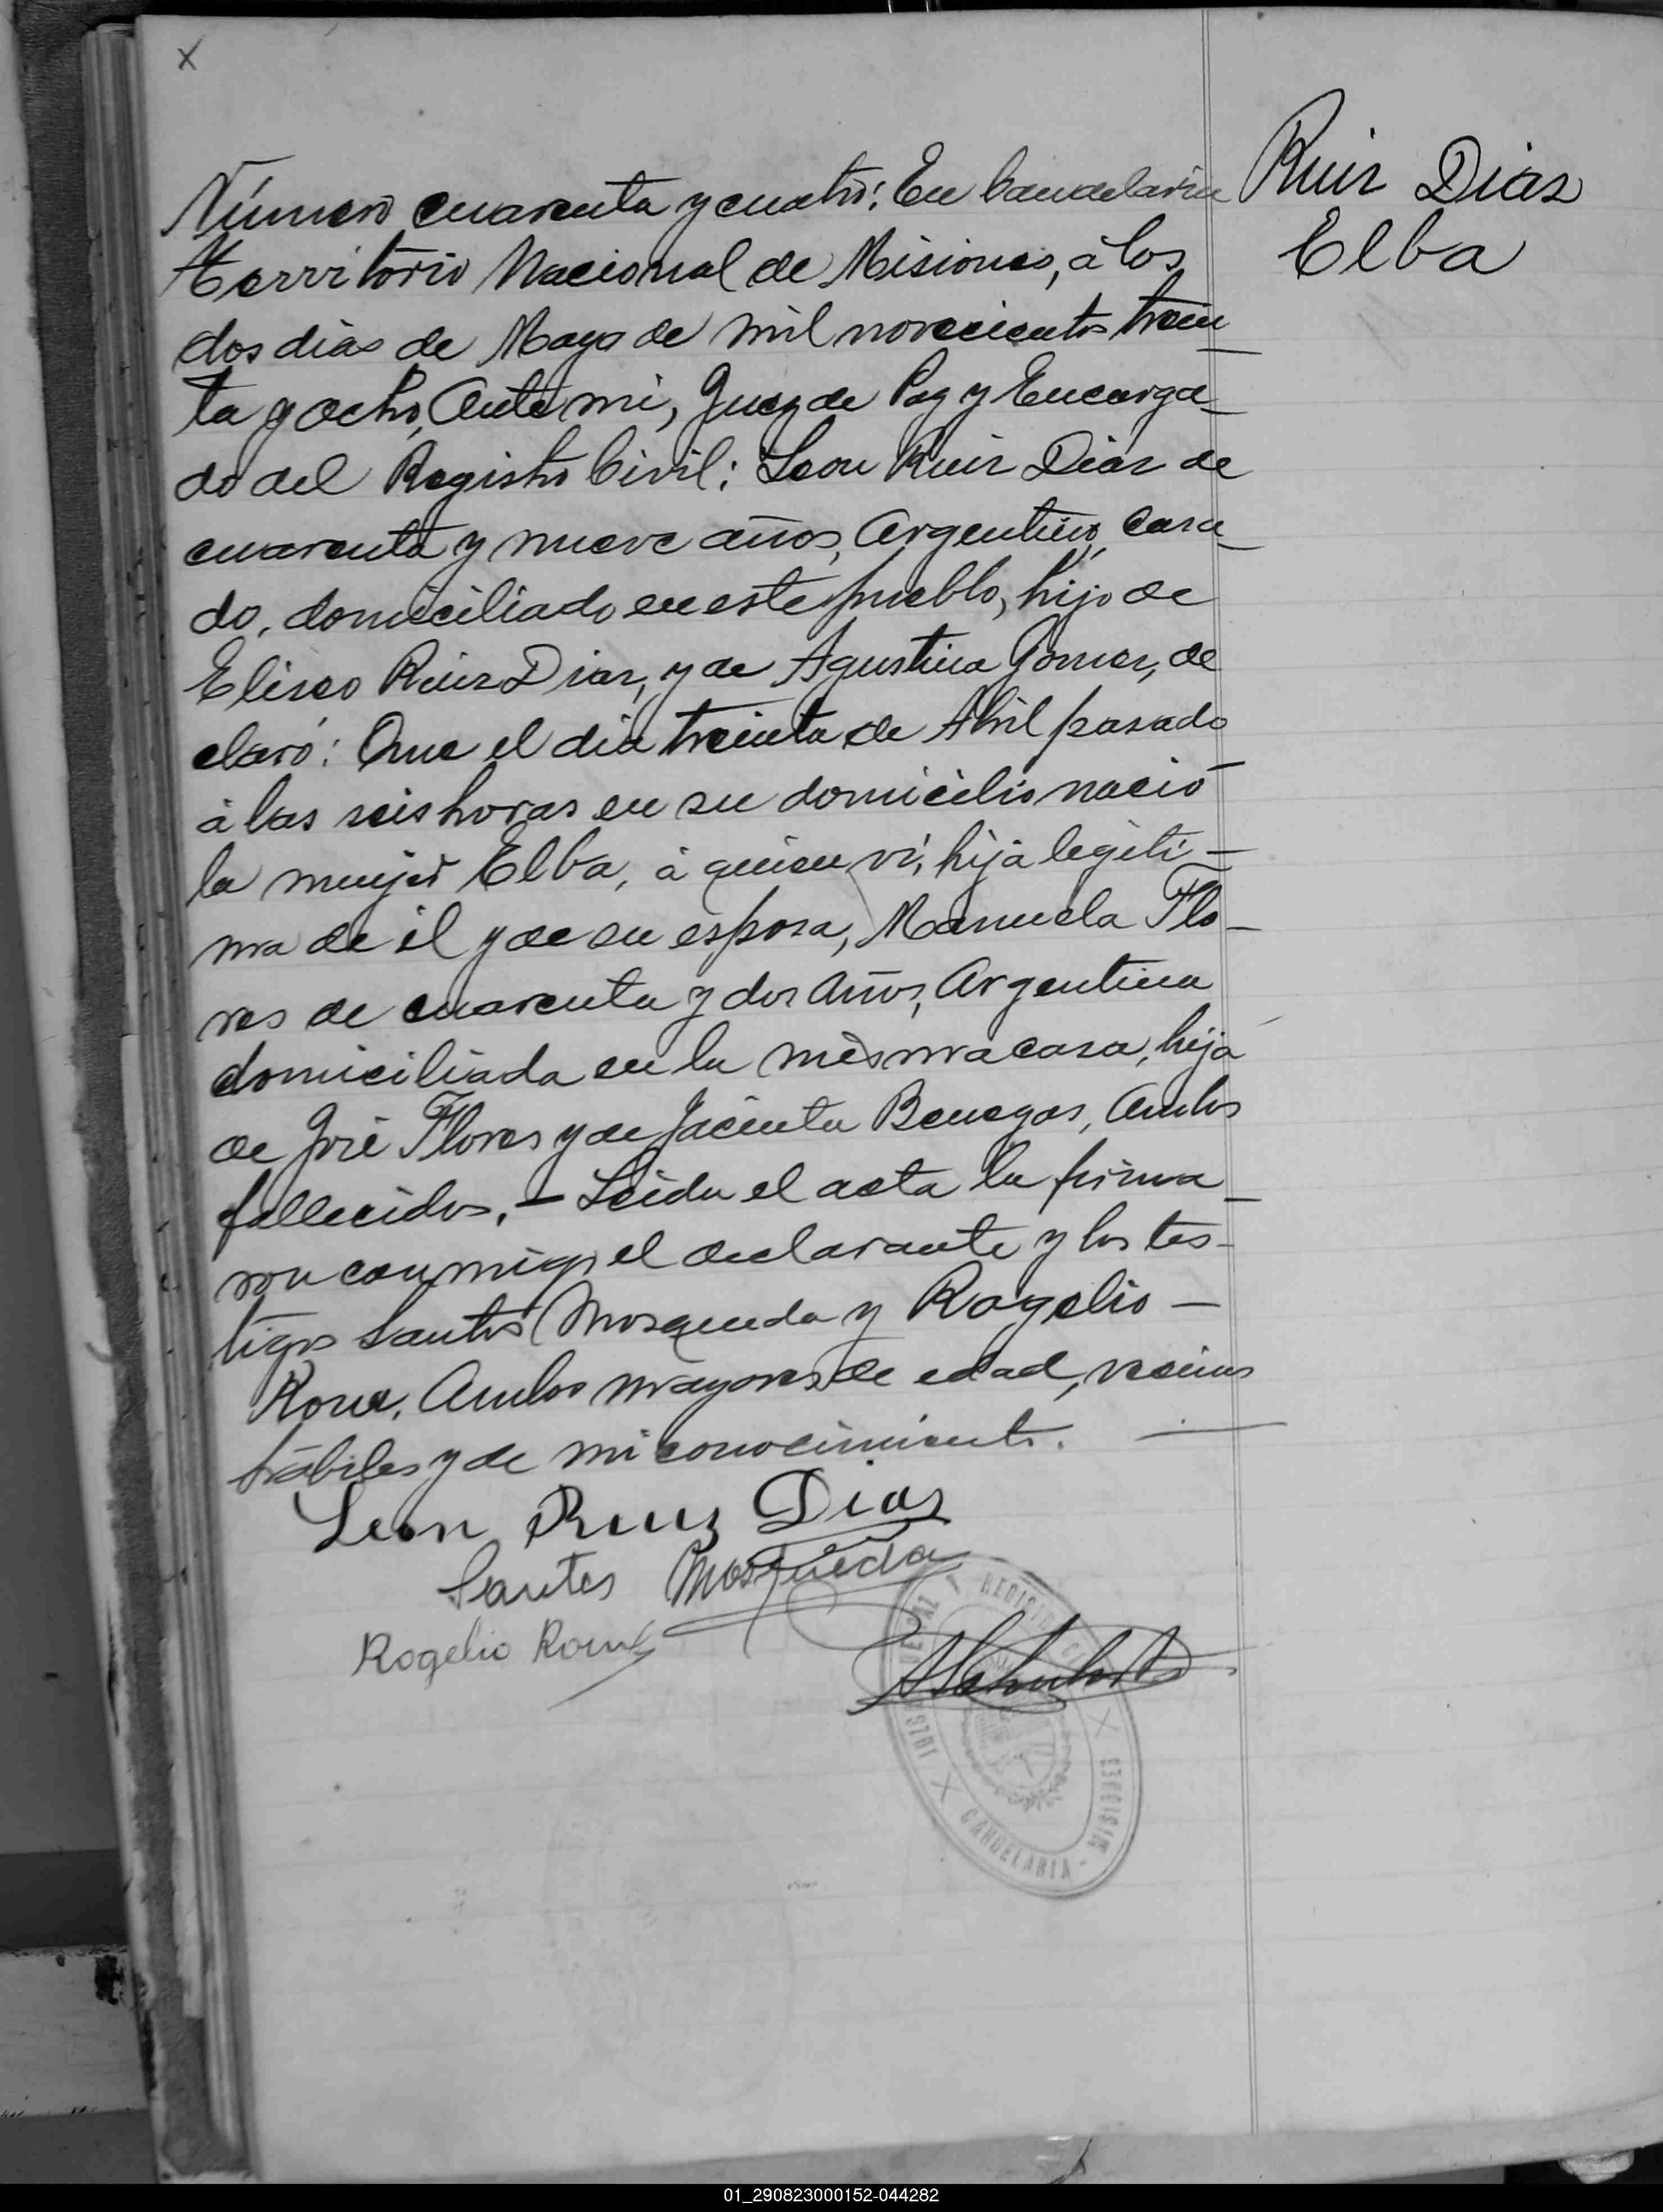 X
Ruiz Dias
Elba
Número cuarenta y cuatro: En Candelaria
Territorio Nacional de Misiones, á los
dos dias de Mayo de mil novecientos trein_
ta y ocho, Ante mi, Juez de Paz y Encarga_
do del Registro Civil: Leon Ruiz Diaz de
cuarenta y nueve años, Argentino, casa_
do, domiciliado en este pueblo, hijo de
Eliseo Ruiz Diaz, y de Agustina Gomez, de
claró: Que el dia treinta de Abril pasado
á las seis horas en su domicilio nació
la mujer Elba, á quien vi, hija legiti-
ma de él y de su esposa, Manuela Flo-
res de cuarenta y dos Años, Argentina
domiciliada en la misma casa, hija
de José Flores y de Jacinta Benegas, Ambos
fallecidos.- Leida el acta la firma_
ron conmigo el declarante y los tes-
tigos Santos Mosqueda y Rogelio -
Rome, Ambos mayores de edad, vecinos
hábiles y de mi conocimiento. -
Leon Ruiz Dias
Santos Mosqueda
Rogelio
REGISTRO
CANDELARIA - MISIONES
01_290823000152-044282